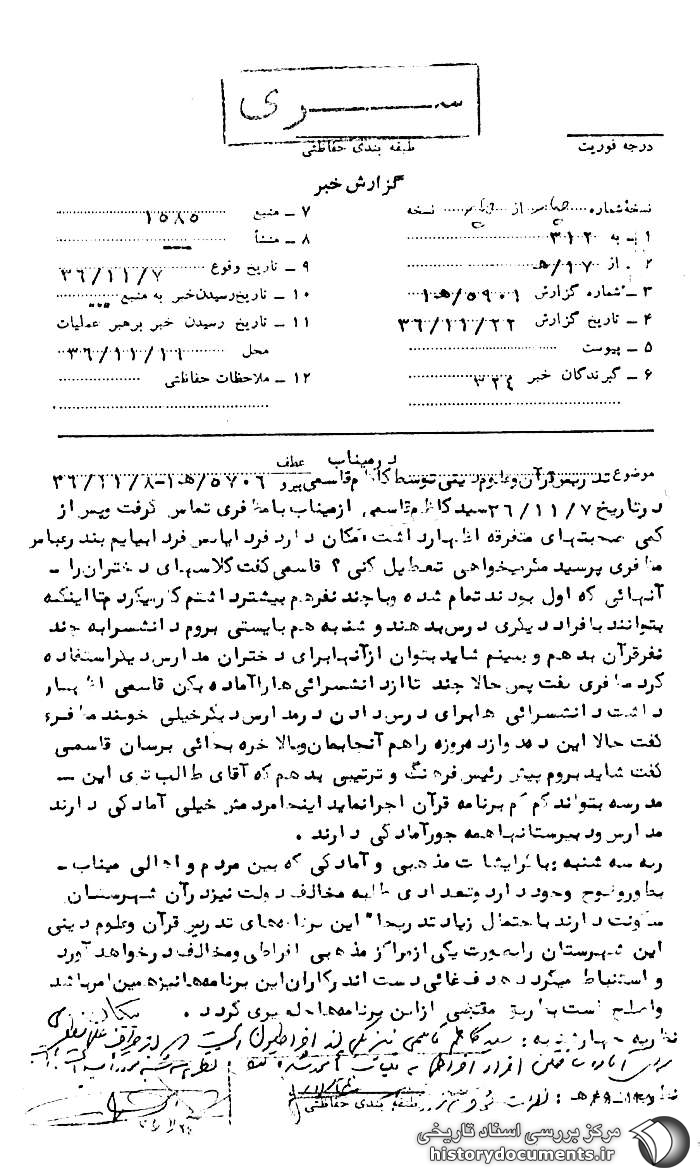 سری
طبقه بندی حفاظتی
درجه فوریت
گزارش خبر
نسخهٔ شماره چهار از چهار نسخه
۱ ـ به ۳۱۲
۲ ـ از ۱۷/هـ
۳ ـ شماره گزارش ۵۹۰۹/هـ۱
۴ ـ تاریخ گزارش ۳۶/۱۱/۲۲
۵ ـ پیوست
۶ ـ گیرندگان خبر ۳۲۴
۷ ـ منبع ۱۵۸۵
۸ ـ منشأ
۹ ـ تاریخ وقوع ۳۶/۱۱/۷
۱۰ ـ تاریخ رسیدن خبر به منبع
۱۱ ـ تاریخ رسیدن خبر برهبر عملیات
محل ۳۶/۱۱/۱۱
۱۲ ـ ملاحظات حفاظتی
در میناب
موضوع تدریس قرآن وعلوم دینی توسط کاظم قاسمی عطف پیرو ۵۷۰۶/هـ۱-۳۶/۱۱/۸
در تاریخ ۳۶/۱۱/۷ سید کاظم قاسمی از میناب با مظفری تماس گرفت وپس از
کمی صحبتهای متفرقه اظهار داشت امکان دارد فردا یا پس فردا بیایم بندرعباس
مظفری پرسید مگر میخواهی تعطیل کنی ؟ قاسمی گفت کلاسهای دختران را ـ
آنهائی که اول بودند تمام شده وبا چند نفر هم بیشتر داشتم کار میکردم تا اینکه
بتوانند بافراد دیگری درس بدهند و شنبه هم بایستی بروم دانشسرا به چند
نفر قرآن بدهم و ببینم شاید بتوان از آنها برای دختران مدارس دیگر استفاده
کرد مظفری گفت پس حالا چند تا از دانشسرائی ها را آماده بکن قاسمی اظهار
داشت دانشسرائی ها برای درس دادن در مدارس دیگر خیلی خوبند مظفری
گفت حالا این ده دوازده روزه را هم آنجا بمان وبالاخره بجائی برسان قاسمی
گفت شاید بروم پیش رئیس فرهنگ و ترتیبی بدهم که آقای طالب تری این ـ
مدرسه بتواند کم کم برنامه قرآن اجرا نماید اینجا مردمش خیلی آمادگی دارند
مدارس و دبیرستانها همه جور آمادگی دارند .
نظریه سه شنبه : با گرایشات مذهبی و آمادگی که بین مردم و اهالی میناب ـ
بطور وضوح وجود دارد وتعدادی طلبه مخالف دولت نیز در آن شهرستان
سکونت دارند با احتمال زیاد تدریجا" این برنامه های تدریس قرآن وعلوم دینی
این شهرستان را بصورت یکی از مراکز مذهبی افراطی ومخالف در خواهد آورد
و استنباط میگردد هدف غائی دست اندرکاران این برنامه ها نیز همین امر باشد
واصلح است بطریق مقتضی از این برنامه ها جلوگیری گردد .
نظریه چهارشنبه : سید کاظم قاسمی نیز یکی از افراطیون است
برای آماده ساختن افراد
نظریه
طبقه بندی حفاظتی
مرکز بررسی اسناد تاریخی
historydocuments.ir